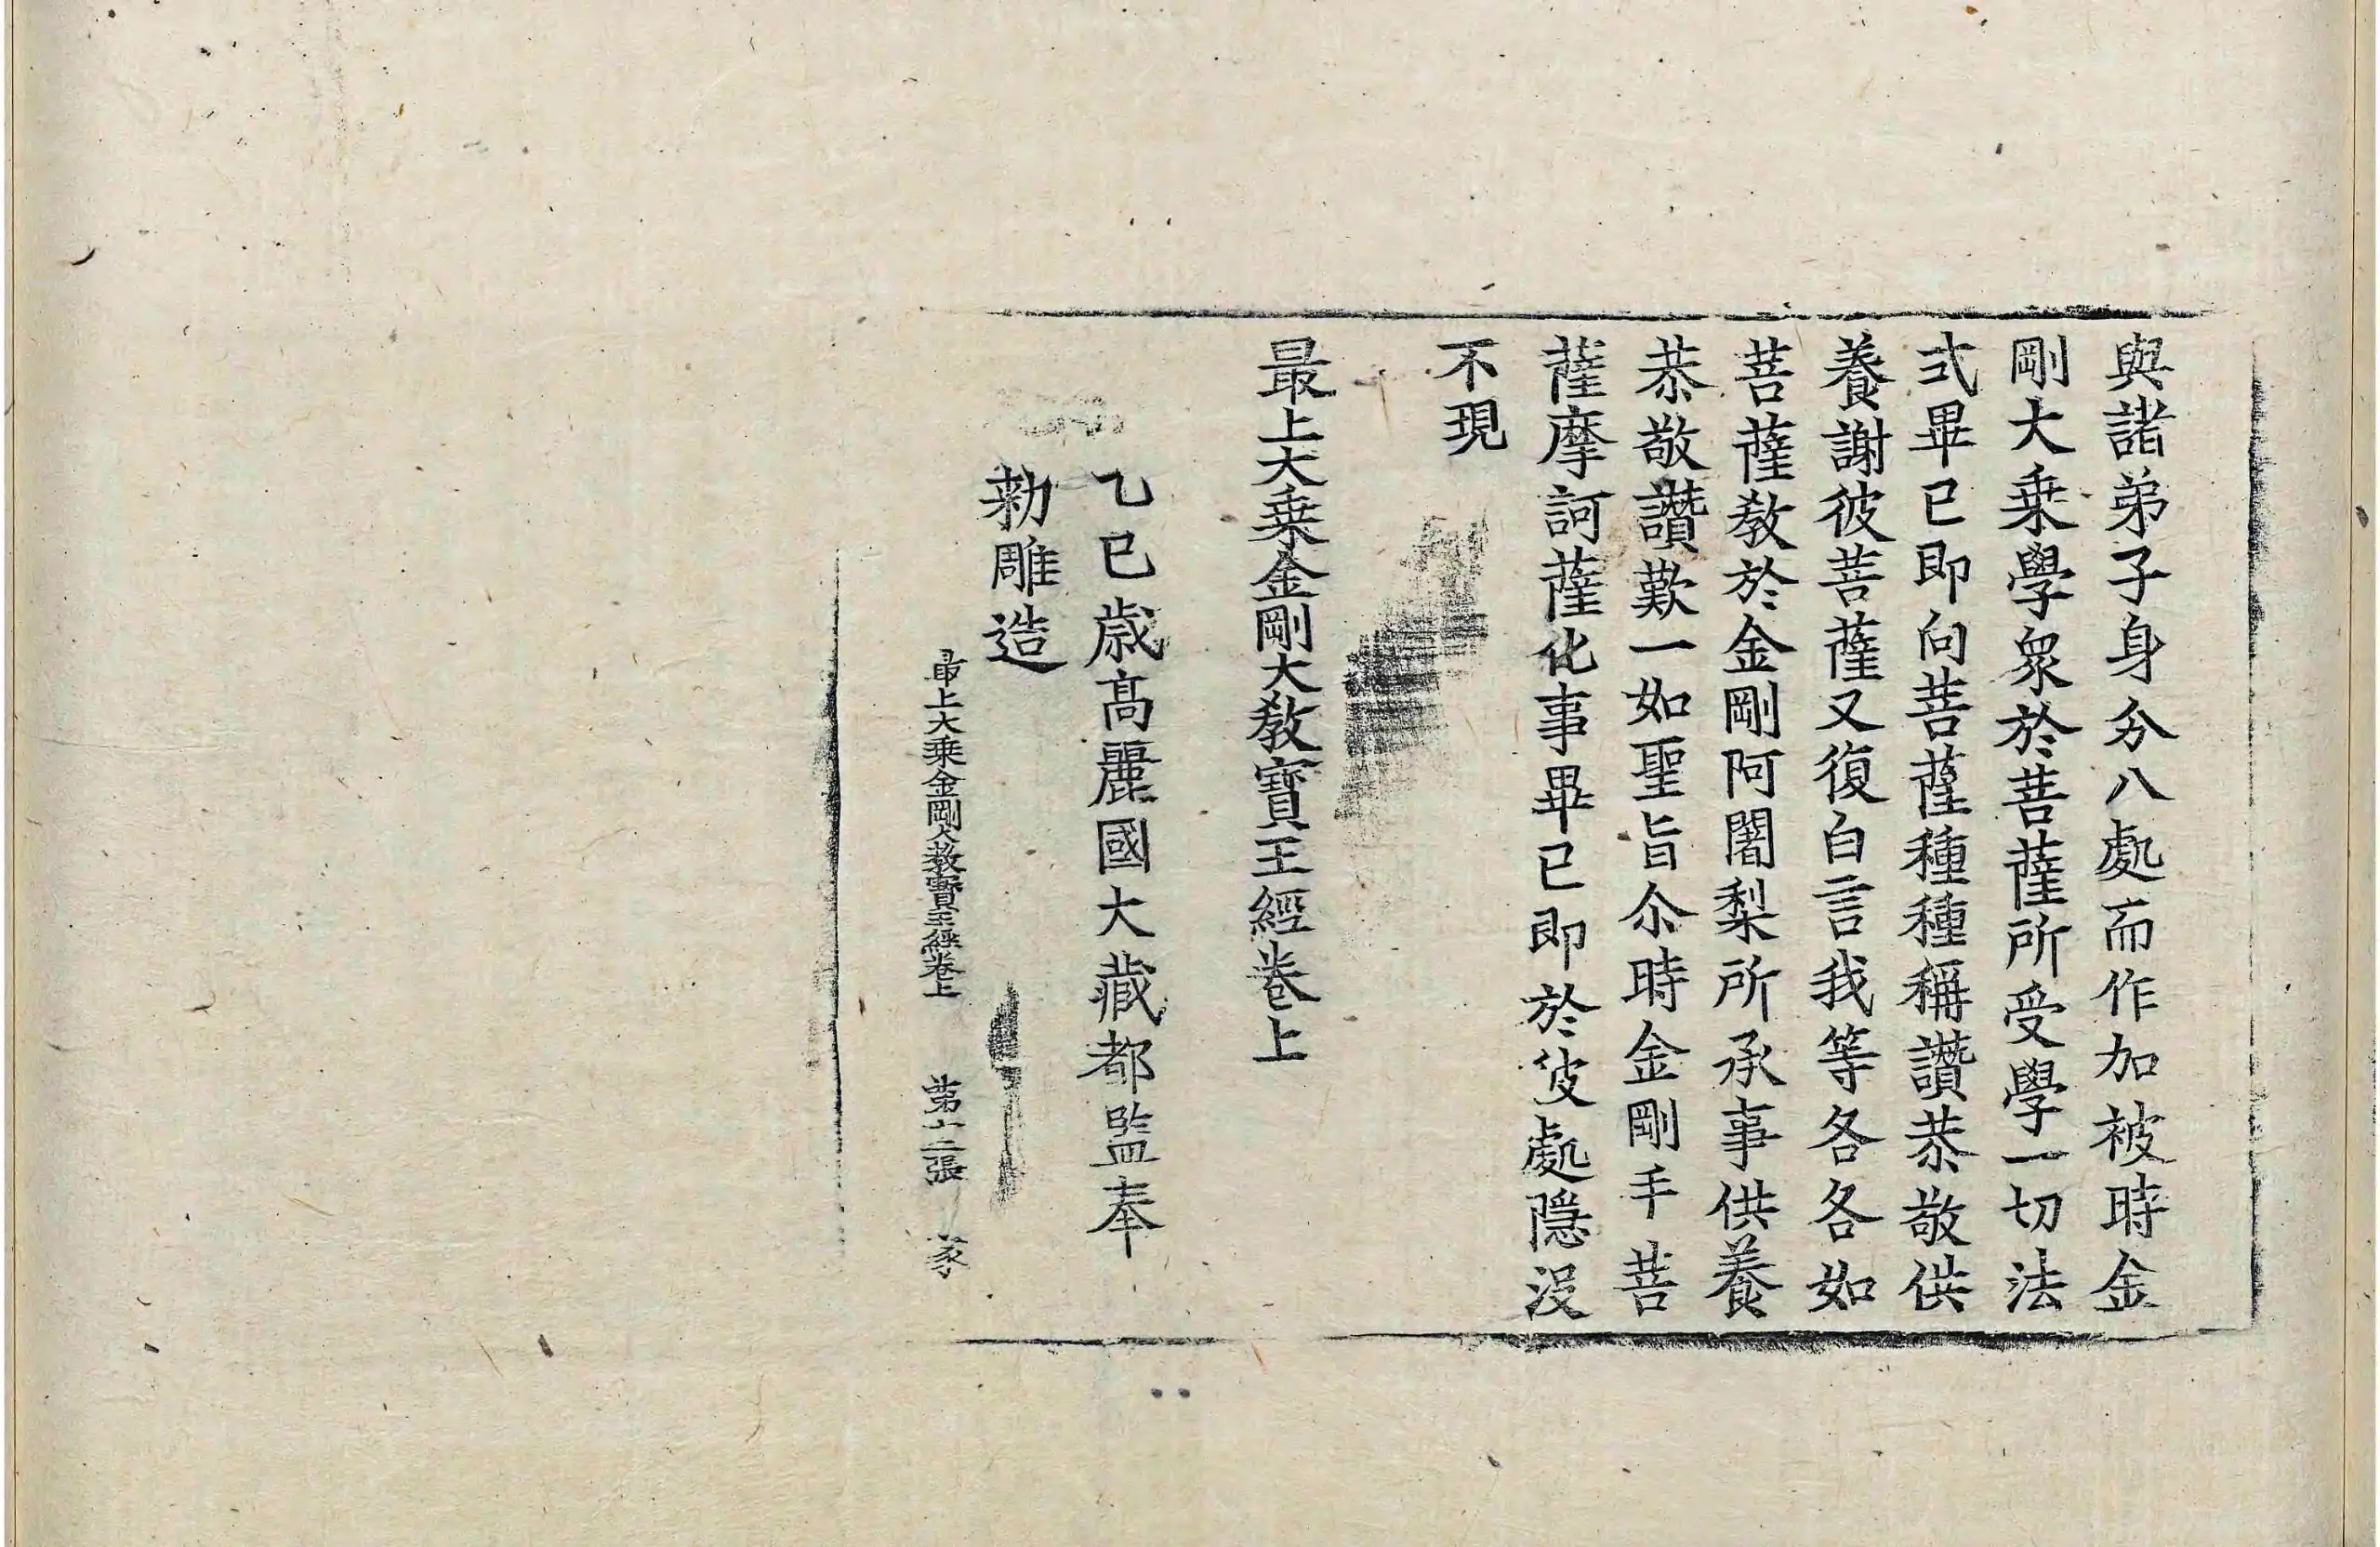 與諸弟子身分八處而作加被時金
剛大乗學衆於菩薩所受學一切法
式畢已即向菩薩種種稱讚恭敬供
養謝彼菩薩又復白言我等各各如
菩薩教於金剛阿闍梨所承事供養
恭敬讚歎一如聖旨尒時金剛手菩
薩摩訶薩化事畢已即於彼處隱没
不現
最上大乗金剛大教寶王經卷上
乙巳歳髙麗國大藏都監奉
勑雕造
最上大乗金剛大教寶王經卷上 第十二張